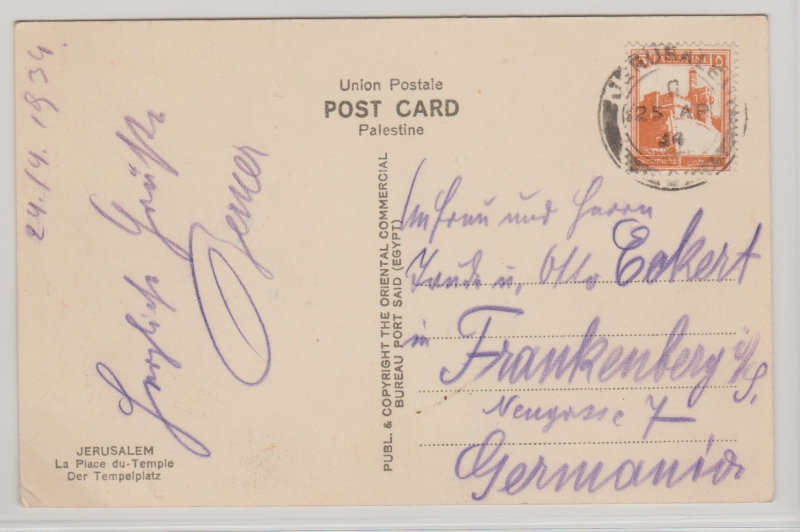 24.14.1934.
Herzliche Grüße
Union Postale
POST CARD
Palestine
PUBL. & COPYRIGHT THE ORIENTAL COMMERCIAL
BUREAU PORT SAID (EGYPT)
JERUSALEM
25 AP
34
An Frau und Herrn
u. Otto Eckert
in
Frankenberg i/S.
Neugasse 7
Germania
JERUSALEM
La Place du-Temple
Der Tempelplatz